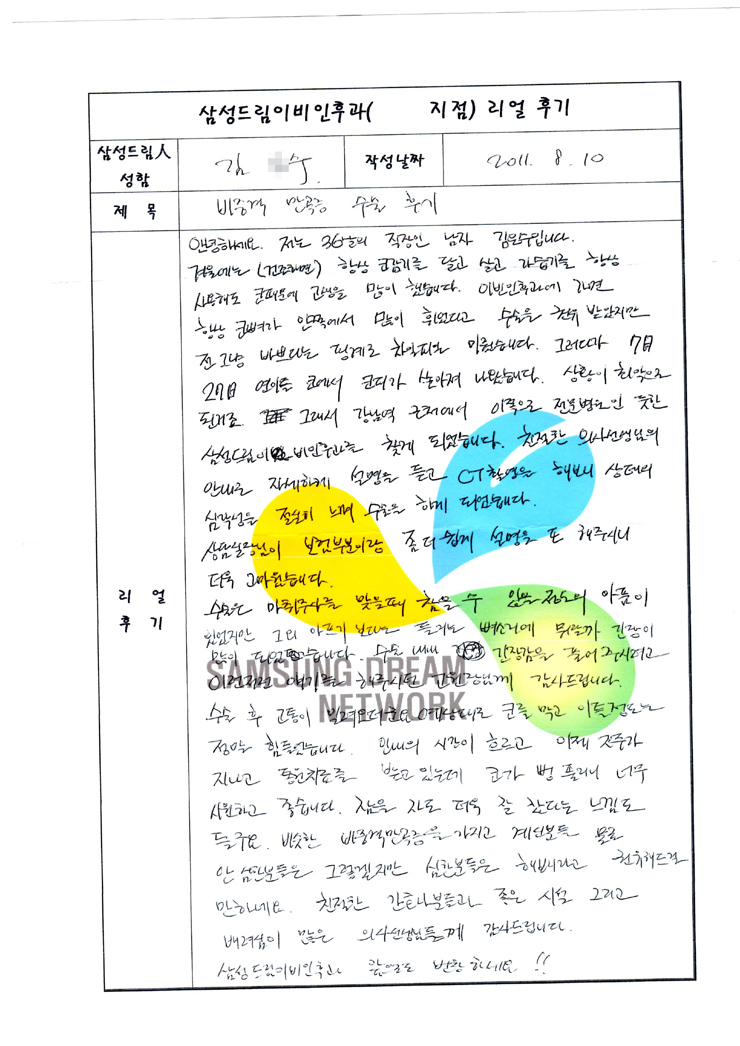 삼성드림이비인후과( 지점) 리얼 후기
삼성드림人 성함
김 수.
작성날짜
2011. 8. 10
제 목
비중격 만곡증 수술 후기
리 얼 후 기
안녕하세요. 저는 36살의 직장인 남자 김은수입니다.
겨울에는 (건조하면) 항상 코감기를 달고 살고 가습기를 항상
사용해도 코때문에 고생을 많이 했습니다. 이비인후과에 가면
항상 코뼈가 안쪽에서 많이 휘었다고 수술을 권유 받았지만
전 그냥 바쁘다는 핑계로 차일피일 미뤘습니다. 그러다가 7月
27日 연이틀 코에서 코피가 쏟아져 나왔습니다. 상황이 최악으로
된거죠. 그래서 강남역 근처에서 이쪽으로 전문병원인 듯한
삼성드림이비인후과를 찾게 되었습니다. 친절한 의사선생님의
안내로 자세하게 설명을 듣고 CT촬영을 해보니 상태의
심각성을 절실히 느껴 수술을 하게 되었습니다.
상담실장님이 보험부분이랑 좀 더 쉽게 설명을 또 해주시니
더욱 고마웠습니다.
수술은 마취주사를 맞을때 참을 수 있을 정도의 아픔이
있었지만 그리 아프기 보다는 들리는 뼈소리에 뭐랄까 긴장이
많이 되었습니다. 수술 내내 긴장감을 풀어 주시려고
이런저런 얘기를 해주시던 원장님께 감사드립니다.
SAMSUNG DREAM
NETWORK
수술 후 고통이 밀려오더군요 예상대로 코를 막고 이틀정도는
정말 힘들었습니다. 인내의 시간이 흐르고 이제 전주가
지나고 통원치료를 받고 있는데 코가 뻥 뚫리니 너무
시원하고 좋습니다. 잠을 자도 더욱 잘 잤다는 느낌도
들구요. 비슷한 비중격만곡증을 가지고 계신분들 물론
안 심한분들은 그렇겠지만 심한분들은 해보라고 권유해드릴
만하네요. 친절한 간호사분들과 좋은 시설 그리고
배려심이 많은 의사선생님들께 감사드립니다.
삼성드림이비인후과 앞으로도 번창하세요 !!